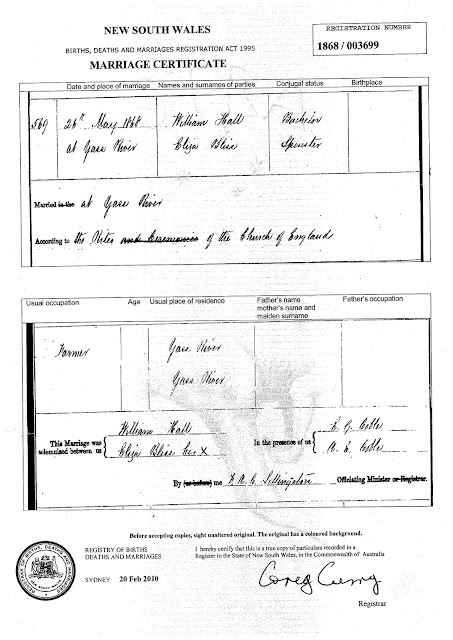 NEW SOUTH WALES
REGISTRATION NUMBER
BIRTHS, DEATHS AND MARRIAGES REGISTRATION ACT 1995
1868 / 003699
MARRIAGE CERTIFICATE
Date and place of marriage Names and surnames of parties Conjugal status Birthplace
569 26th May 1868 William Hall Bachelor
at Yass River Eliza Bliss Spinster
Married in the at Yass River
According to the Rites and Ceremonies of the Church of England
Usual occupation Age Usual place of residence Father's name Father's occupation
mother's name and
maiden surname
Farmer Yass River
Yass River
William Hall
This Marriage was
solemnised between us
Eliza Bliss her X
In the presence of us
E. G. Cobb
A. E. Cobb
By (or before) me Officiating Minister or Registrar.
Before accepting copies, sight unaltered original. The original has a coloured background.
REGISTRY OF BIRTHS
DEATHS AND MARRIAGES
I hereby certify that this is a true copy of particulars recorded in a
Register in the State of New South Wales, in the Commonwealth of Australia
SYDNEY 20 Feb 2010
Greg Curry
Registrar
REGISTRY OF BIRTHS, DEATHS AND MARRIAGES